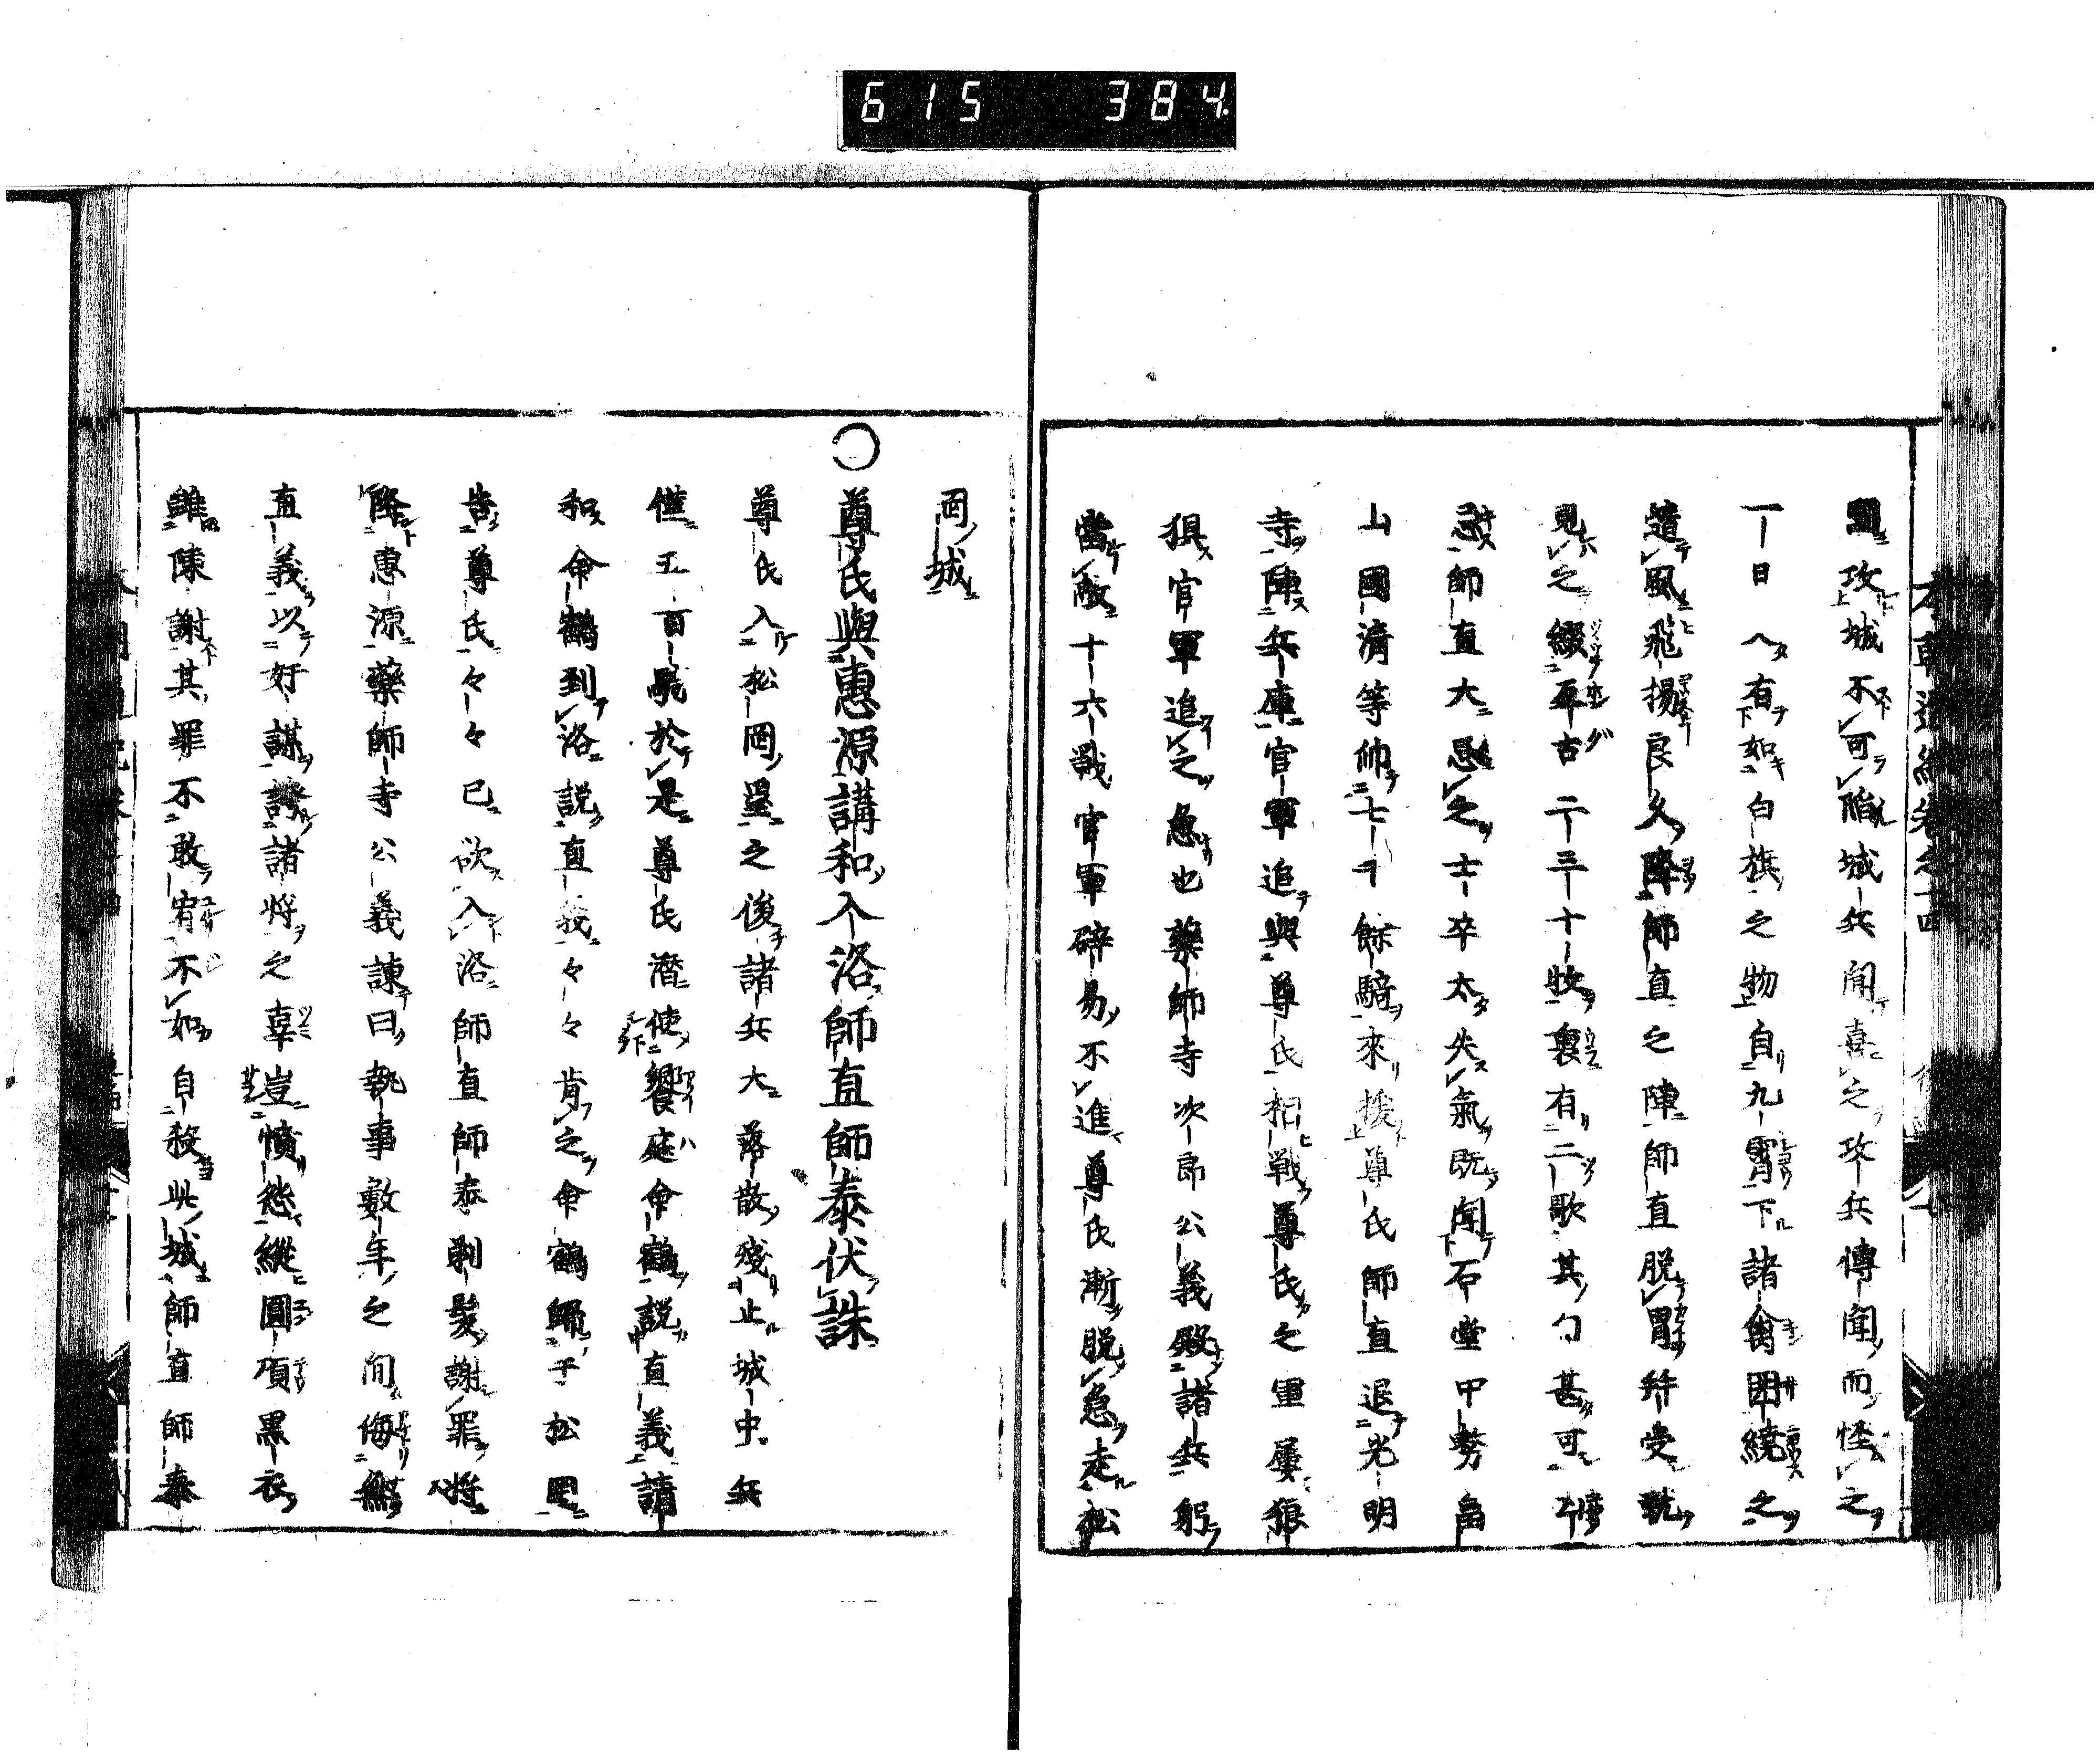 615 384
攻城不可陥城兵聞喜之攻兵傳聞而怪之
一日ヘ有如白旗之物自九霄下諸禽囲繞之
遣風飛揚良久降師直之陣師直脱冑舛受號
見之綴平古二三十牧裏有二歌其句甚可
忌師直大忌之士卒太失氣既聞石堂甲勢畠
山國清等帥七千餘騎來援尊氏師直退光明
寺陣兵庫官軍追與尊氏相戰尊氏之軍屢狼
狽官軍追之急也藥師寺次郎公義殿諸兵躬
當敵十六戰官軍辟易不進尊氏漸脱急走松
岡城
○尊氏與惠源講和入洛師直師泰伏誅
尊氏入松岡壘之後諸兵大落散殘止城中兵
僅五百騎於是尊氏潛使饗庭命鶴説直義請
和命鶴到洛説直義々々肯之命鶴歸于松岡
告尊氏々々已欲入洛師直師泰剃髪謝罪將
降惠源藥師寺公義諌曰執事數年之間侮
直義以好謀諸將之辜豈憤怨縱圓頂黒衣
雖陳謝其罪不敢宥不如自殺此城師直師泰